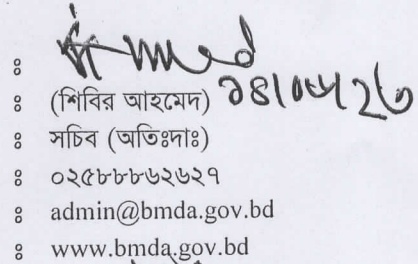 ঃ
ঃ (শিবির আহমেদ)
ঃ সচিব (অতিঃদাঃ)
ঃ ০২৫৮৮৮৬২৬২৭
ঃ admin@bmda.gov.bd
ঃ www.bmda.gov.bd